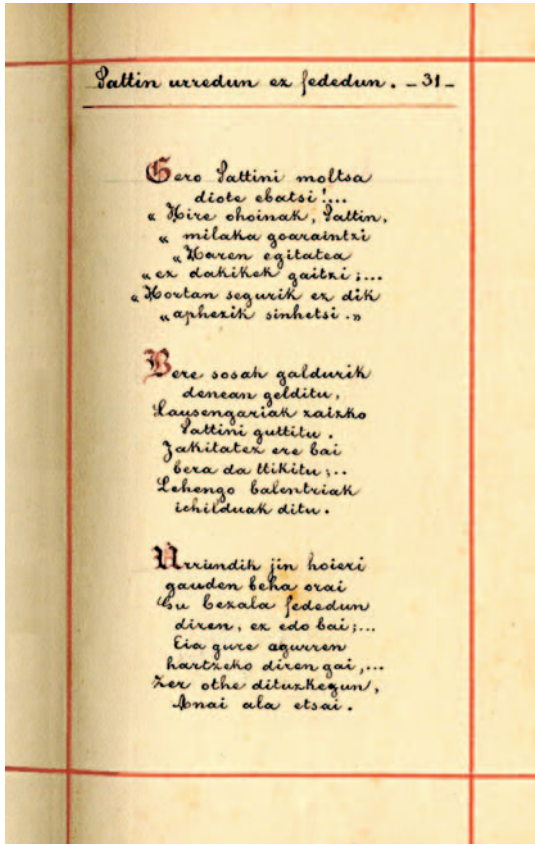 Pattin urredun ez fededun. – 31 –
Gero Pattini moltsa
diote ebatsi!...
« Hire ohoinak, Pattin,
« milaka goaraintzi
« Haren egitatea
« ez dakikek gaitzi ;...
« Hortan segurik ez dik
« aphezik sinhetsi. »
Bere sosak galdurik
denean gelditu,
Lausengariak zaizko
Pattini guttitu.
Jakitatez ere bai
bera da ttikitu ;..
Lehengo balentriak
ichilduak ditu.
Urrundik jin hoieri
gauden beha orai
Gu bezala fededun
diren, ez edo bai ;...
Eia gure agurren
hartzeko diren gai,...
Zer othe dituzkegun,
Anai ala etsai.